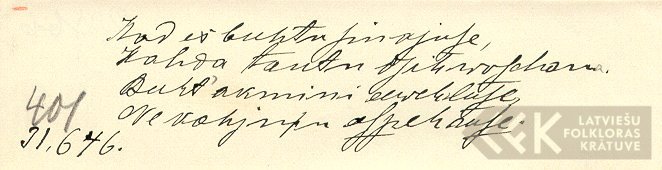 Kad es buhtu sinajuse,
Kahda tautu dsihwoschana.
Buht' akmini eewehluse
Ne kahjiņu aispehruse.
401
31.646.
LATVIEŠU
FOLKLORAS
KRĀTUVE